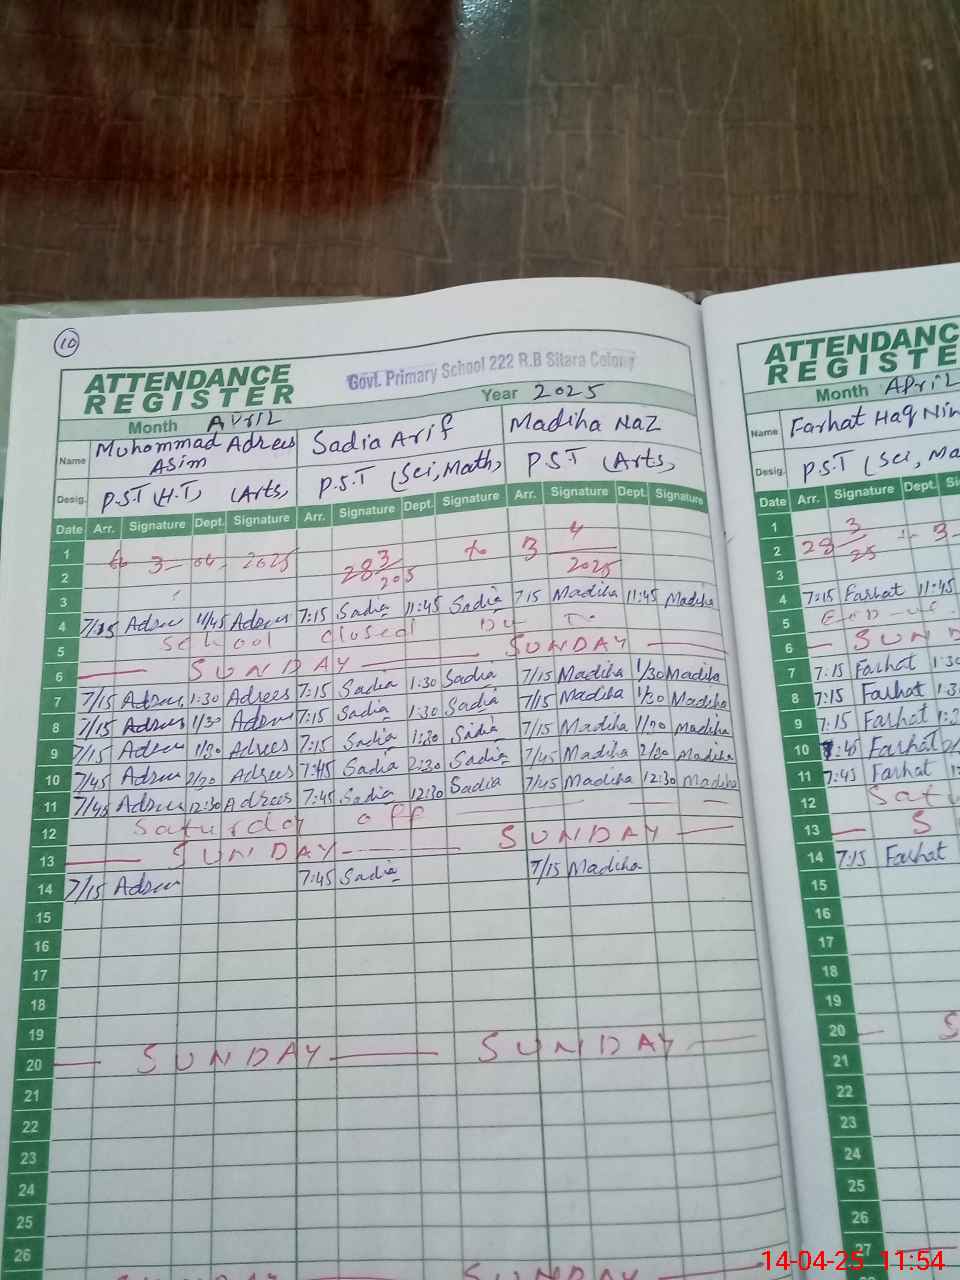 10
ATTENDANCE
REGISTER
Govt. Primary School 222 R.B Sitara Colony
Month APRIL Year 2025
Name Muhammad Adrees Asim Sadia Arif Madiha Naz
Desig. P.S.T (H.T) (Arts, P.S.T (Sci, Math, P S T (Arts,
Date Arr. Signature Dept. Signature Arr. Signature Dept. Signature Arr. Signature Dept. Signature
1
2
3
4 7/15 Adrees 11/45 Adrees 7:15 Sadia 11:45 Sadia 7:15 Madiha 11:45 Madiha
5 School closed
6 SUNDAY SUNDAY
7 7/15 Adrees 1:30 Adrees 7:15 Sadia 1:30 Sadia 7/15 Madiha 1/30 Madiha
8 7/15 Adrees 1/30 Adrees 7:15 Sadia 1:30 Sadia 7/15 Madiha 1/30 Madiha
9 7/15 Adrees 1/30 Adrees 7:15 Sadia 1:30 Sadia 7/15 Madiha 1/30 Madiha
10 7/45 Adrees 2/30 Adrees 7:45 Sadia 2:30 Sadia 7/45 Madiha 2/30 Madiha
11 7/45 Adrees 12:30 Adrees 7:45 Sadia 12:30 Sadia 7/45 Madiha 12:30 Madiha
12 Saturday off
13 SUNDAY SUNDAY
14 7/15 Adrees 7:45 Sadia 7/15 Madiha
15
16
17
18
19
20 SUNDAY SUNDAY
21
22
23
24
25
26
SUNDAY
ATTENDANC
REGISTE
Month APRIL
Name Farhat Haq
Desig. P.S.T (Sci, Ma
Date Arr. Signature Dept. Si
1
2
3
4 7:15 Farhat 11:45
5
6 SUND
7 7:15 Farhat 1:30
8 7:15 Farhat 1:3
9 7:15 Farhat
10 7:45 Farhat
11 7:45 Farhat
12 Satu
13 S
14 7:15 Farhat
15
16
17
18
19
20 S
21
22
23
24
25
26
27
14-04-25 11:54